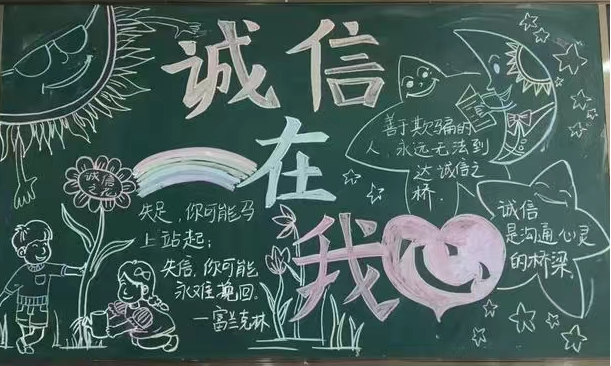 诚信
在
我
诚信
之花
失足,你可能马
上站起;
失信,你可能
永难挽回。
—富兰克林
善于欺骗的
人,永远无法到
达诚信之
桥.
诚信
是沟通心灵
的桥梁